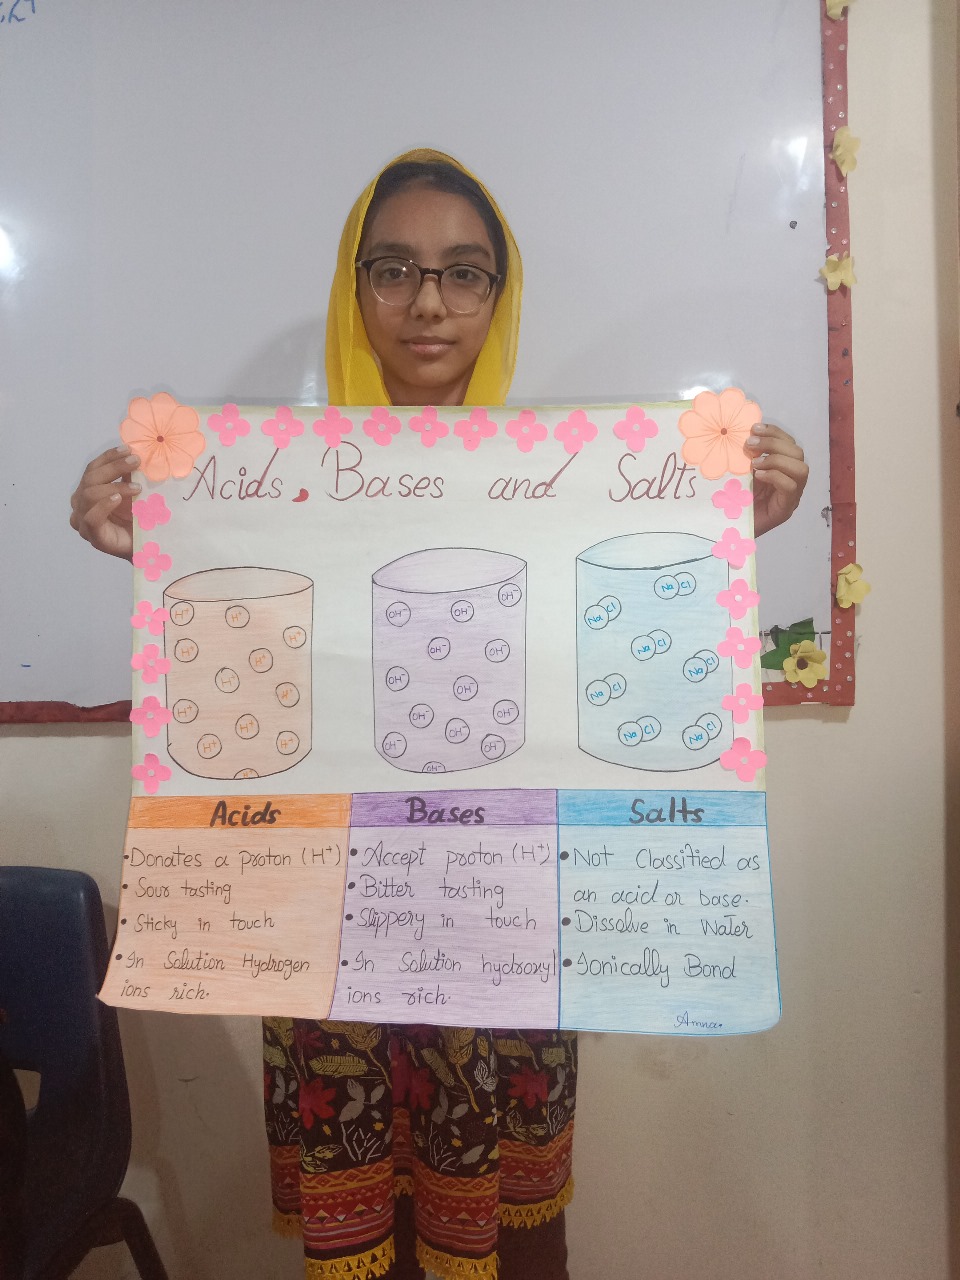 Acids, Bases and Salts
H⁺ H⁺ H⁺
H⁺ H⁺
H⁺ H⁺
H⁺ H⁺
H⁺ H⁺
H⁺
OH⁻ OH⁻ OH⁻
OH⁻ OH⁻
OH⁻ OH⁻
OH⁻ OH⁻
OH⁻ OH⁻ OH⁻
OH⁻
Na Cl
Na Cl
Na Cl
Na Cl
Na Cl
Na Cl Na Cl
Acids
• Donates a proton (H⁺)
• Sour tasting
• Sticky in touch
• In Solution Hydrogen
ions rich.
Bases
• Accept proton (H⁺)
• Bitter tasting
• Slippery in touch
• In Solution hydroxyl
ions rich.
Salts
• Not Classified as
an acid or base.
• Dissolve in Water
• Ionically Bond
Amna.